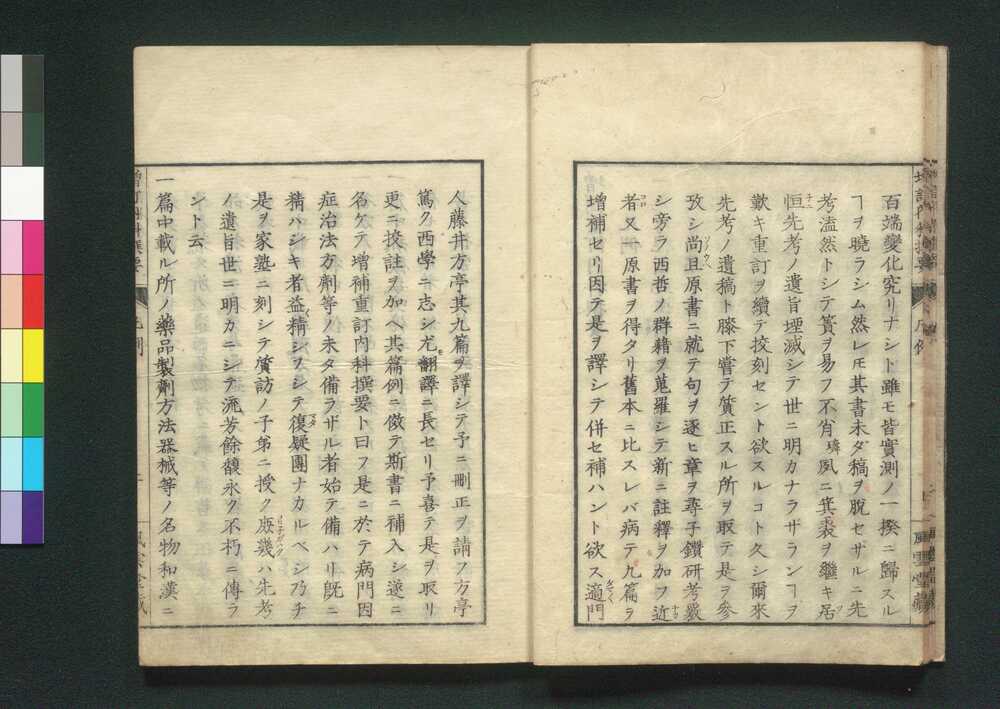 百端變化究リナシト雖モ皆實測ノ一揆ニ歸スル
ヿヲ曉ラシム然レ𪜈其書未ダ稿ヲ脫セザルニ先
考溘然トシテ簀ヲ易フ不肖璘夙ニ箕裘ヲ繼キ居
恒先考ノ遺旨堙滅シテ世ニ明カナラザランヿヲ
歎キ重訂ヲ續テ挍刻セント欲スルコト久シ爾來
先考ノ遺稿ト膝下嘗テ質正スル所ヲ取テ是ヲ參
攷シ尚且原書ニ就テ句ヲ逐ヒ章ヲ尋子鑽研考覈
シ旁ラ西哲ノ群籍ヲ蒐羅シテ新ニ註釋ヲ加フ近
者又一原書ヲ得タリ舊本ニ比スレバ病テ九篇ヲ
增補セリ因テ是ヲ譯シテ併セ補ハント欲ス適門
人藤井方亭其九篇ヲ譯シテ予ニ刪正ヲ請フ方亭
篤ク西學ニ志シ尤翻譯ニ長セリ予喜テ是ヲ取リ
更ニ挍註ヲ加ヘ其篇例ニ倣テ斯書ニ補入シ遂ニ
名ケテ增補重訂内科撰要ト曰フ是ニ於テ病門因
症治法方劑等ノ未タ備ラザル者始テ備ハリ既ニ
精ハシキ者益精シフシテ復疑團ナカルベシ乃チ
是ヲ家塾ニ刻シテ質訪ノ子弟ニ授ク庻幾ハ先考
ノ遺旨世ニ明カニシテ流芳餘馥永ク不朽ニ傳ラ
ント云
一篇中載ル所ノ藥品製劑方法器械等ノ名物和漢ニ